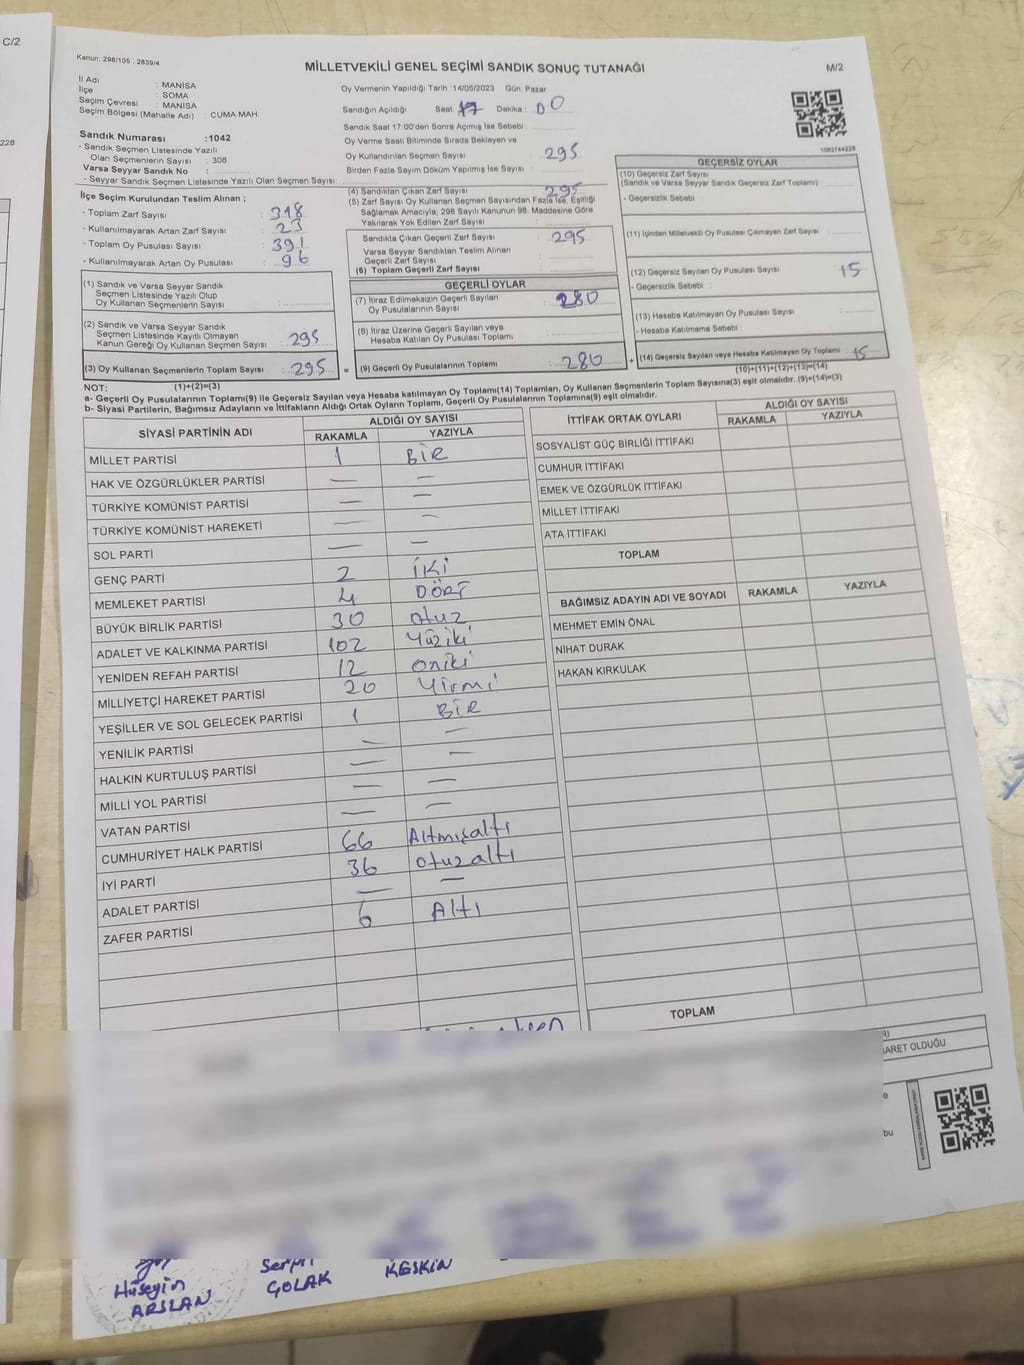 C/2
Kanun: 298/105 , 2839/4
MİLLETVEKİLİ GENEL SEÇİMİ SANDIK SONUÇ TUTANAĞI
M/2
İl Adı : MANİSA
İlçe : SOMA
Seçim Çevresi : MANİSA
Seçim Bölgesi (Mahalle Adı) : CUMA MAH.
Oy Vermenin Yapıldığı Tarih :14/05/2023 Gün: Pazar
Sandığın Açıldığı Saat 17 Dakika : 00
Sandık Saat 17:00'den Sonra Açımış İse Sebebi :
Oy Verme Saati Bitiminde Sırada Bekleyen ve
Oy Kullandırılan Seçmen Sayısı 295
Birden Fazla Sayım Döküm Yapılmış İse Sayısı :
1082744228
Sandık Numarası :1042
- Sandık Seçmen Listesinde Yazılı
Olan Seçmenlerin Sayısı : 308
Varsa Seyyar Sandık No :
- Seyyar Sandık Seçmen Listesinde Yazılı Olan Seçmen Sayısı:
İlçe Seçim Kurulundan Teslim Alınan ;
- Toplam Zarf Sayısı : 318
- Kullanılmayarak Artan Zarf Sayısı : 23
- Toplam Oy Pusulası Sayısı : 391
- Kullanılmayarak Artan Oy Pusulası : 96
(1) Sandık ve Varsa Seyyar Sandık
Seçmen Listesinde Yazılı Olup
Oy Kullanan Seçmenlerin Sayısı :
(2) Sandık ve Varsa Seyyar Sandık
Seçmen Listesinde Kayıtlı Olmayan
Kanun Gereği Oy Kullanan Seçmen Sayısı : 295
(3) Oy Kullanan Seçmenlerin Toplam Sayısı : 295
(4) Sandıktan Çıkan Zarf Sayısı : 295
(5) Zarf Sayısı Oy Kullanan Seçmen Sayısından Fazla İse, Eşitliği
Sağlamak Amacıyla, 298 Sayılı Kanunun 98. Maddesine Göre
Yakılarak Yok Edilen Zarf Sayısı :
Sandıkta Çıkan Geçerli Zarf Sayısı : 295
Varsa Seyyar Sandıktan Teslim Alınan
Geçerli Zarf Sayısı :
(6) Toplam Geçerli Zarf Sayısı :
GEÇERLİ OYLAR
(7) İtiraz Edilmeksizin Geçerli Sayılan
Oy Pusulalarının Sayısı : 280
(8) İtiraz Üzerine Geçerli Sayılan veya
Hesaba Katılan Oy Pusulası Toplamı :
= (9) Geçerli Oy Pusulalarının Toplamı : 280
GEÇERSİZ OYLAR
(10) Geçersiz Zarf Sayısı
(Sandık ve Varsa Seyyar Sandık Geçersiz Zarf Toplamı) :
- Geçersizlik Sebebi :
(11) İçinden Milletvekili Oy Pusulası Çıkmayan Zarf Sayısı :
(12) Geçersiz Sayılan Oy Pusulası Sayısı : 15
- Geçersizlik Sebebi :
(13) Hesaba Katılmayan Oy Pusulası Sayısı :
- Hesaba Katılmama Sebebi :
+ (14) Geçersiz Sayılan veya Hesaba Katılmayan Oy Toplamı : 15
(10)+(11)+(12)+(13)=(14)
NOT: (1)+(2)=(3)
a- Geçerli Oy Pusulalarının Toplamı(9) ile Geçersiz Sayılan veya Hesaba katılmayan Oy Toplamı(14) Toplamları, Oy Kullanan Seçmenlerin Toplam Sayısına(3) eşit olmalıdır. (9)+(14)=(3)
b- Siyasi Partilerin, Bağımsız Adayların ve İttifakların Aldığı Ortak Oyların Toplamı, Geçerli Oy Pusulalarının Toplamına(9) eşit olmalıdır.
SİYASİ PARTİNİN ADI ALDIĞI OY SAYISI
RAKAMLA YAZIYLA
MİLLET PARTİSİ 1 BİR
HAK VE ÖZGÜRLÜKLER PARTİSİ — —
TÜRKİYE KOMÜNİST PARTİSİ — —
TÜRKİYE KOMÜNİST HAREKETİ — —
SOL PARTİ — —
GENÇ PARTİ 2 İKİ
MEMLEKET PARTİSİ 4 DÖRT
BÜYÜK BİRLİK PARTİSİ 30 otuz
ADALET VE KALKINMA PARTİSİ 102 Yüziki
YENİDEN REFAH PARTİSİ 12 oniki
MİLLİYETÇİ HAREKET PARTİSİ 20 Yirmi
YEŞİLLER VE SOL GELECEK PARTİSİ 1 BİR
YENİLİK PARTİSİ — —
HALKIN KURTULUŞ PARTİSİ — —
MİLLİ YOL PARTİSİ — —
VATAN PARTİSİ — —
CUMHURİYET HALK PARTİSİ 66 Altmışaltı
İYİ PARTİ 36 otuzaltı
ADALET PARTİSİ — —
ZAFER PARTİSİ 6 Altı
İTTİFAK ORTAK OYLARI ALDIĞI OY SAYISI
RAKAMLA YAZIYLA
SOSYALİST GÜÇ BİRLİĞİ İTTİFAKI
CUMHUR İTTİFAKI
EMEK VE ÖZGÜRLÜK İTTİFAKI
MİLLET İTTİFAKI
ATA İTTİFAKI
TOPLAM
BAĞIMSIZ ADAYIN ADI VE SOYADI RAKAMLA YAZIYLA
MEHMET EMİN ÖNAL
NİHAT DURAK
HAKAN KIRKULAK
TOPLAM
ARET OLDUĞU
bu
Hüseyin
ARSLAN
GOLAK
KESKİN